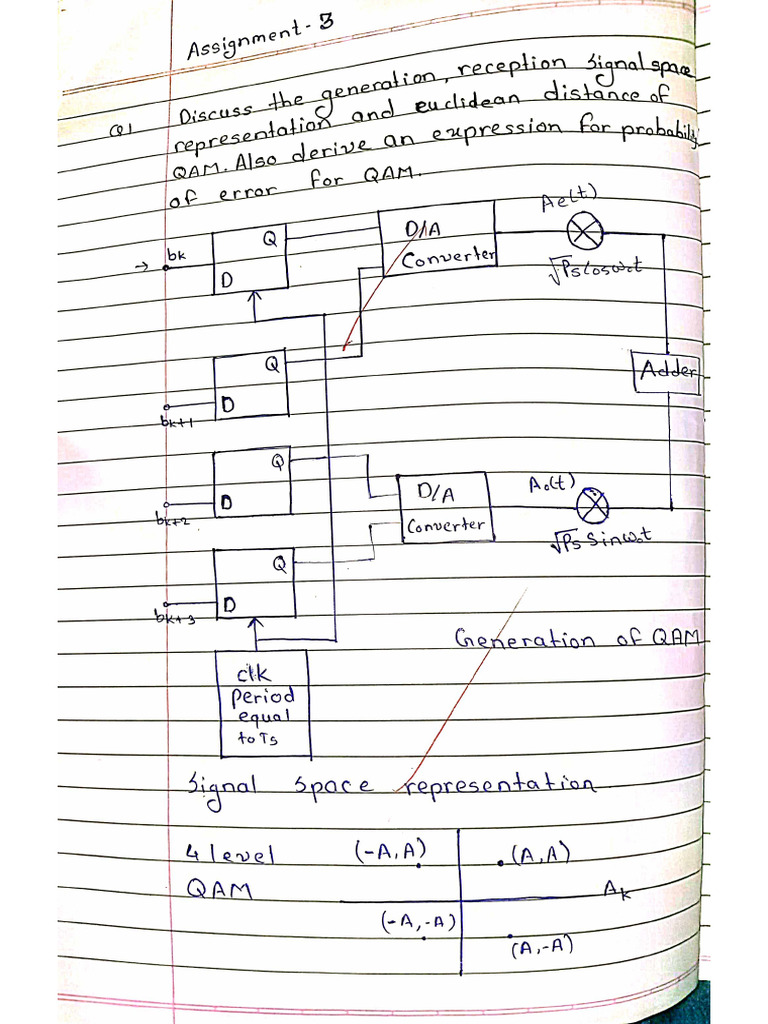 Assignment - 3
Q1 Discuss the generation, reception signal space
representation and euclidean distance of
QAM. Also derive an expression for probability
of error for QAM.
Ae(t)
bk
Q
D/A
Converter
D
√Ps Cosω₀t
Q
Adder
D
bk+1
Q
D/A
Converter
Ao(t)
D
bk+2
√Ps Sinω₀t
Q
D
bk+3
Generation of QAM
clk
Period
equal
to Ts
Signal space representation
4 level (-A,A) (A,A)
QAM Ak
(-A,-A)
(A,-A)